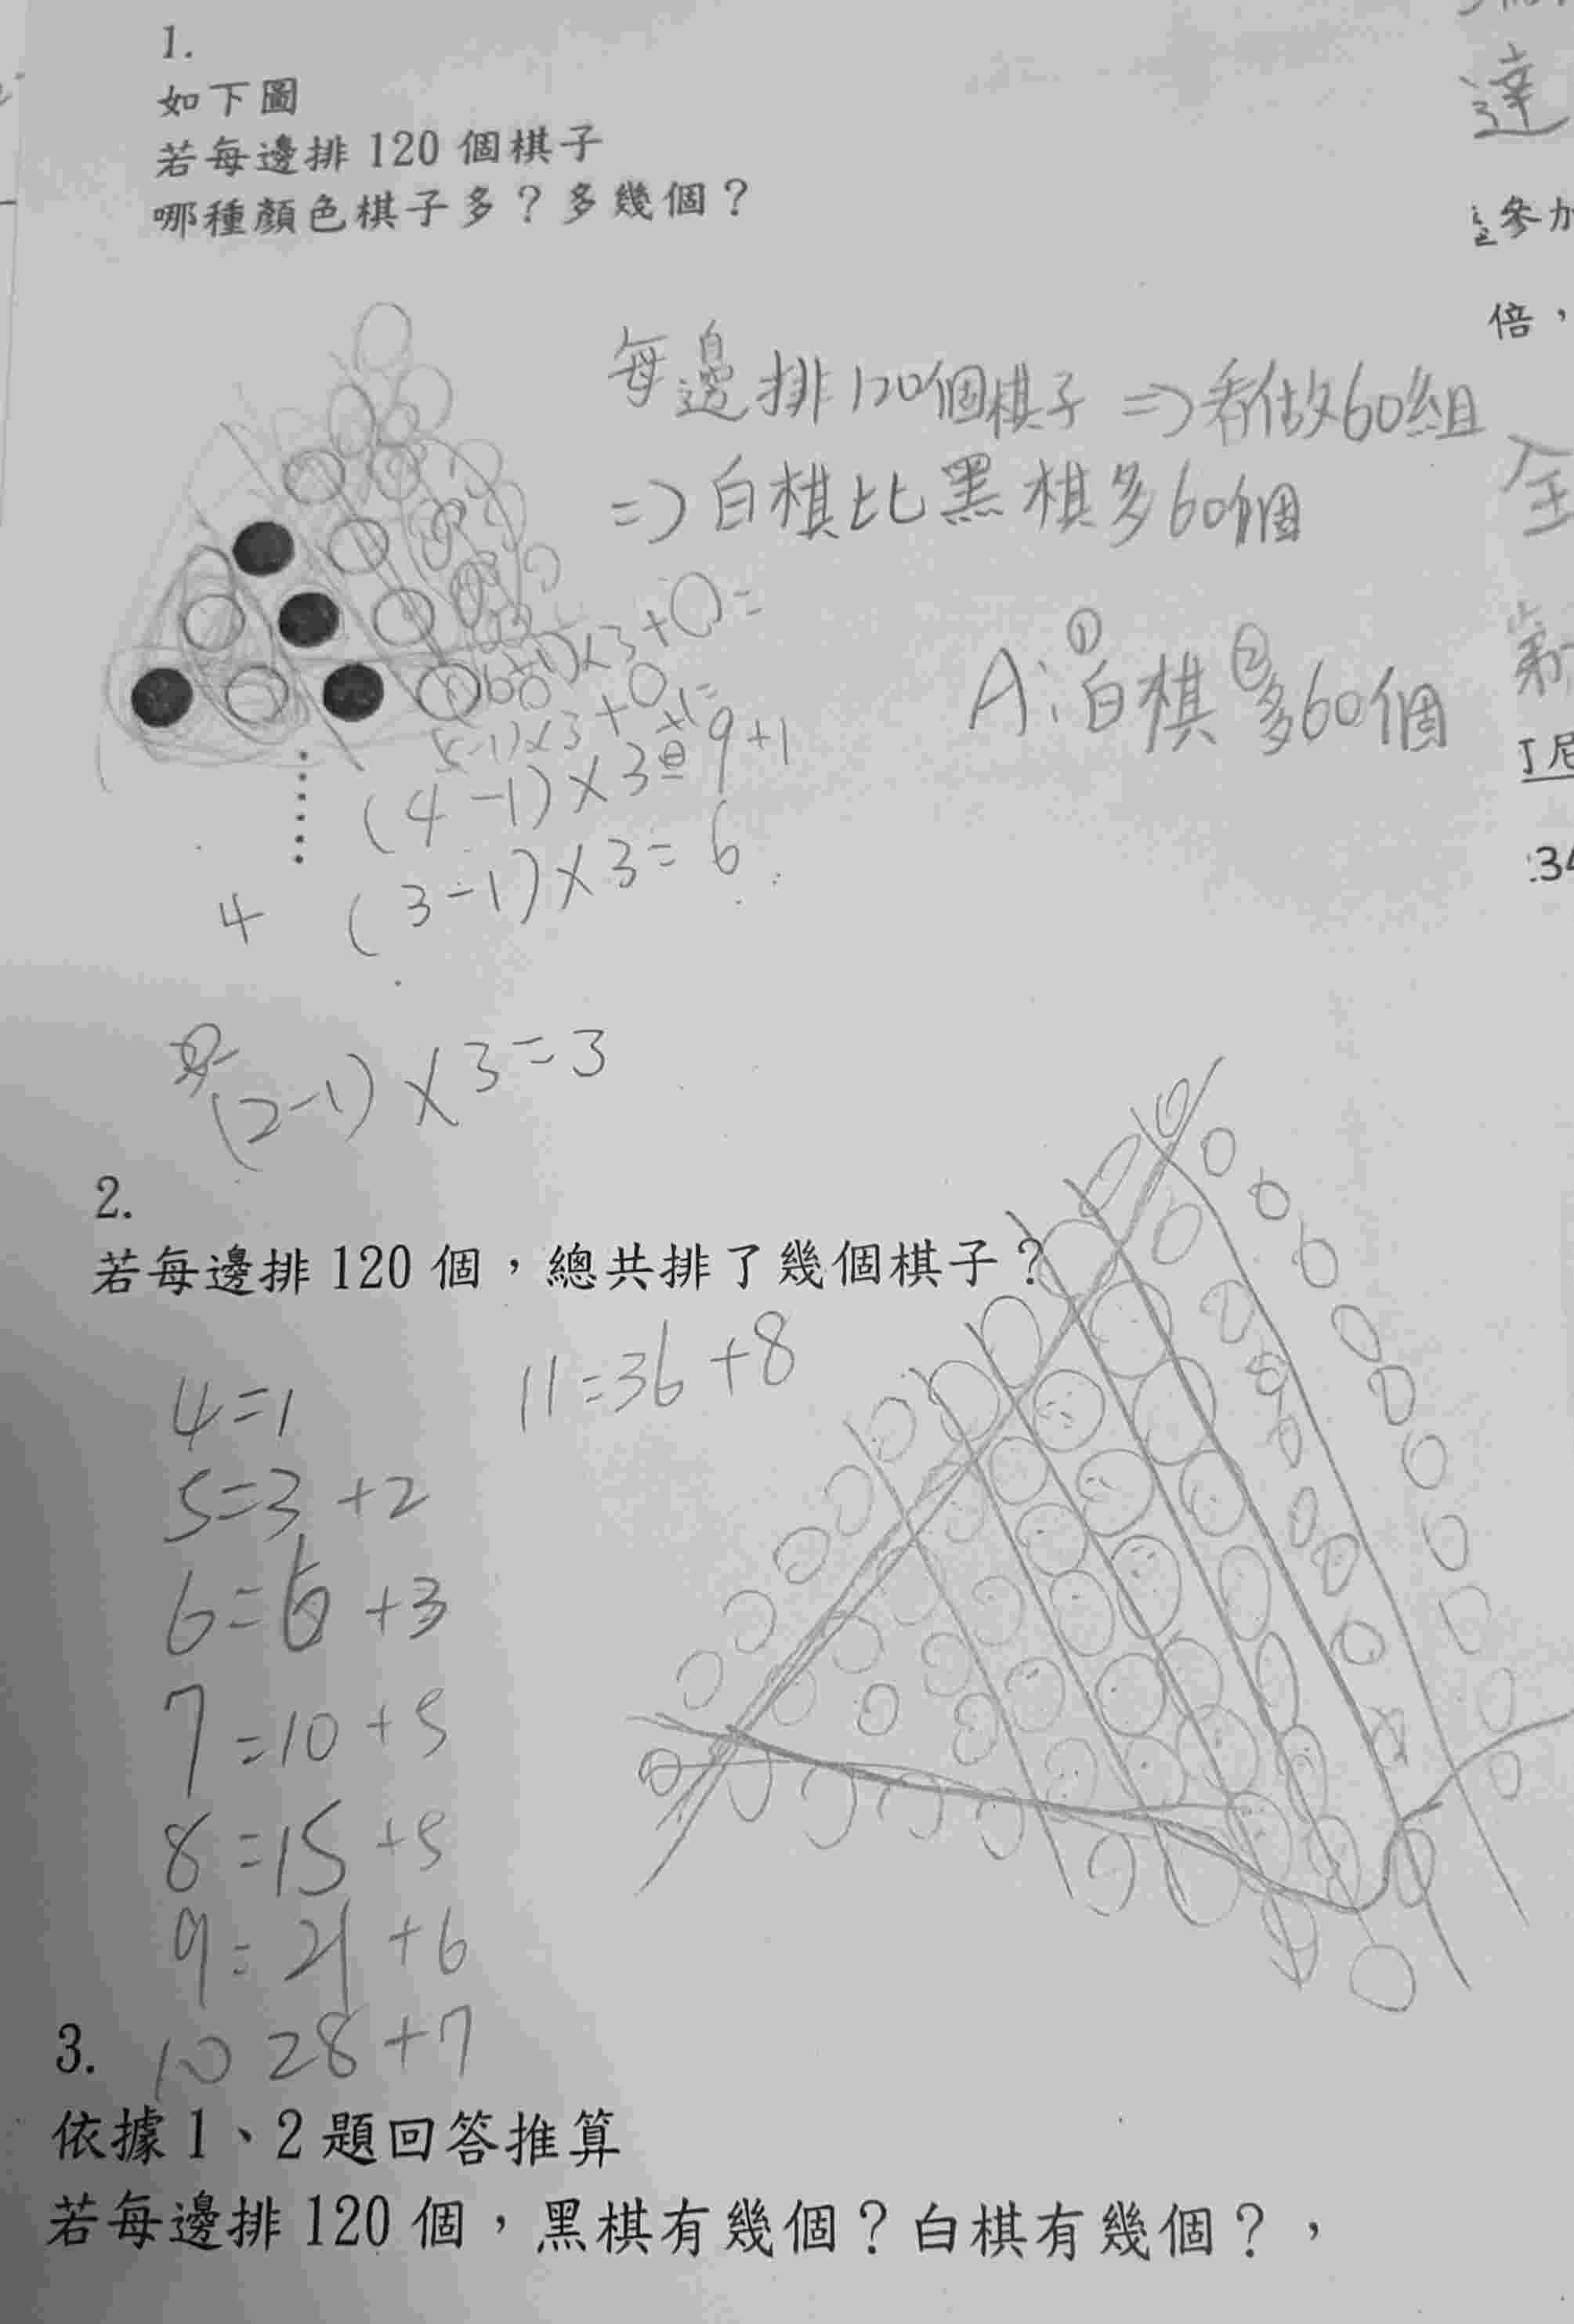 1.
如下圖
若每邊排 120 個棋子
哪種顏色棋子多？多幾個？
每邊排120個棋子 => 看做60組
=> 白棋比黑棋多60個
A:①白棋②多60個
(4-1)×3=9+1
4 (3-1)×3=6
(2-1)×3=3
達
參加
倍，
2.
若每邊排 120 個，總共排了幾個棋子？
11=36+8
4=1
5=3+2
6=6+3
7=10+5
8=15+5
9=21+6
10 28+7
3.
依據 1、2 題回答推算
若每邊排 120 個，黑棋有幾個？白棋有幾個？，